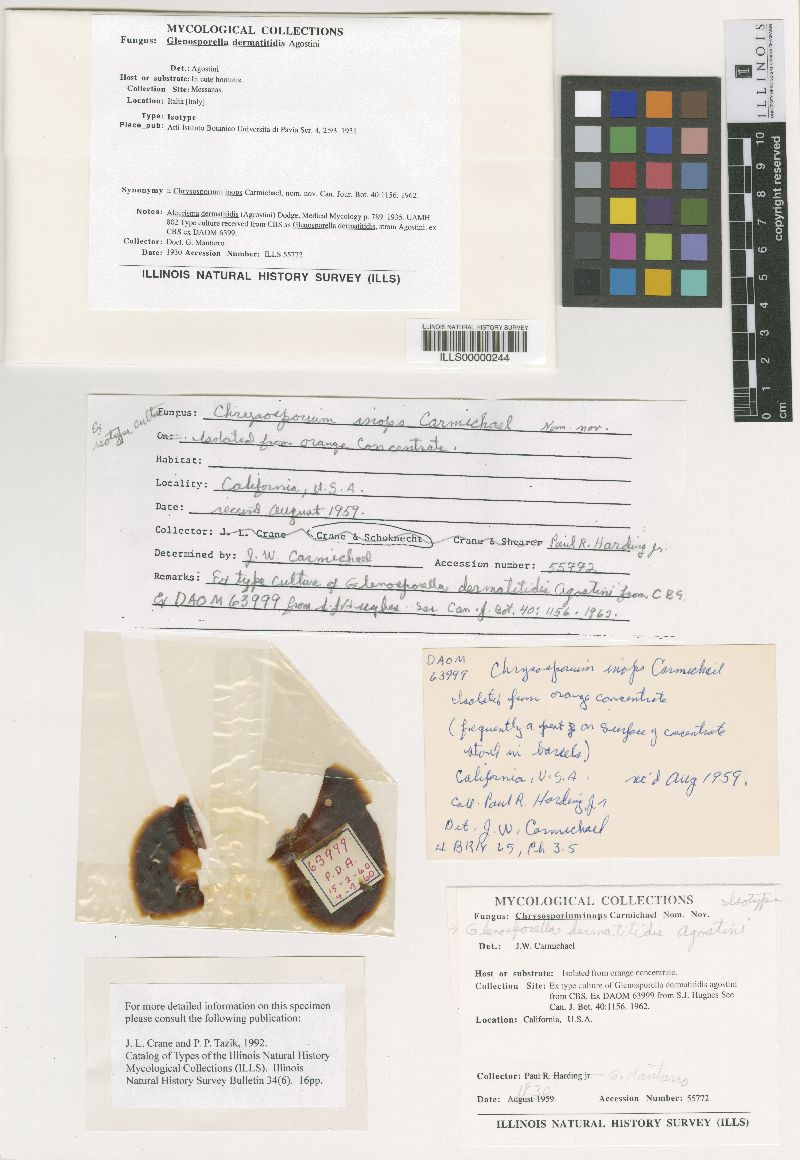 MYCOLOGICAL COLLECTIONS
Fungus: Glenosporella dermatitidis Agostini
Det.: Agostini
Host or substrate: In cute hominis.
Collection Site: Messanas.
Location: Italia [Italy]
Type: Isotype
Place_pub: Atti Istituto Botanico Universita di Pavia Ser. 4, 2:93. 1931
Synonymy = Chrysosporium inops Carmichael, nom. nov. Can. Jour. Bot. 40:1156. 1962.
Notes: Aleurisma dermatitidis (Agostini) Dodge, Medical Mycology p. 789. 1935. UAMH
802 Type culture received from CBS as Glenosporella dermatitidis, strain Agostini, ex
CBS ex DAOM 6399.
Collector: Doct. G. Mantarro
Date: 1930 Accession Number: ILLS 55772
ILLINOIS NATURAL HISTORY SURVEY (ILLS)
ILLINOIS NATURAL HISTORY SURVEY
ILLS00000244
ILLINOIS
0 1 2 3 4 5 6 7 8 9 10
cm
copyright reserved
Ex
isotype culture
Fungus: Chrysosporium inops Carmichael Nom. nov.
On: Isolated from orange concentrate.
Habitat:
Locality: California, U.S.A.
Date: received August 1959.
Collector: J. L. Crane Crane & Schoknecht Crane & Shearer Paul R. Harding Jr.
Determined by: J. W. Carmichael Accession number: 55772
Remarks: Ex type culture of Glenosporella dermatitidis Agostini from CBS.
Ex DAOM 63999 from S.J. Hughes See Can. J. Bot. 40: 1156. 1962.
63999
P.D.A.
15-2-60
4-7-60
DAOM
63999
Chrysosporium inops Carmichael
Isolated from orange concentrate
(frequently a pest on surface of concentrate
stored in barrels)
California, U.S.A. rec'd Aug 1959.
Coll. Paul R. Harding, Jr
Det. J. W. Carmichael
4 BRIX 25, Ph 3.5
MYCOLOGICAL COLLECTIONS Isotype
Fungus: Chrysosporium inops Carmichael Nom. Nov.
Glenosporella dermatitidis Agostini
Det.: J.W. Carmichael
Host or substrate: Isolated from orange concentrate.
Collection Site: Ex type culture of Glenosporella dermatitidis agostini
from CBS. Ex DAOM 63999 from S.J. Hughes See
Can. J. Bot. 40:1156. 1962.
Location: California, U.S.A.
Collector: Paul R. Harding jr. G. Mantarro
1930
Date: August 1959 Accession Number: 55772
ILLINOIS NATURAL HISTORY SURVEY (ILLS)
For more detailed information on this specimen
please consult the following publication:
J. L. Crane and P. P. Tazik, 1992.
Catalog of Types of the Illinois Natural History
Mycological Collections (ILLS). Illinois
Natural History Survey Bulletin 34(6). 16pp.